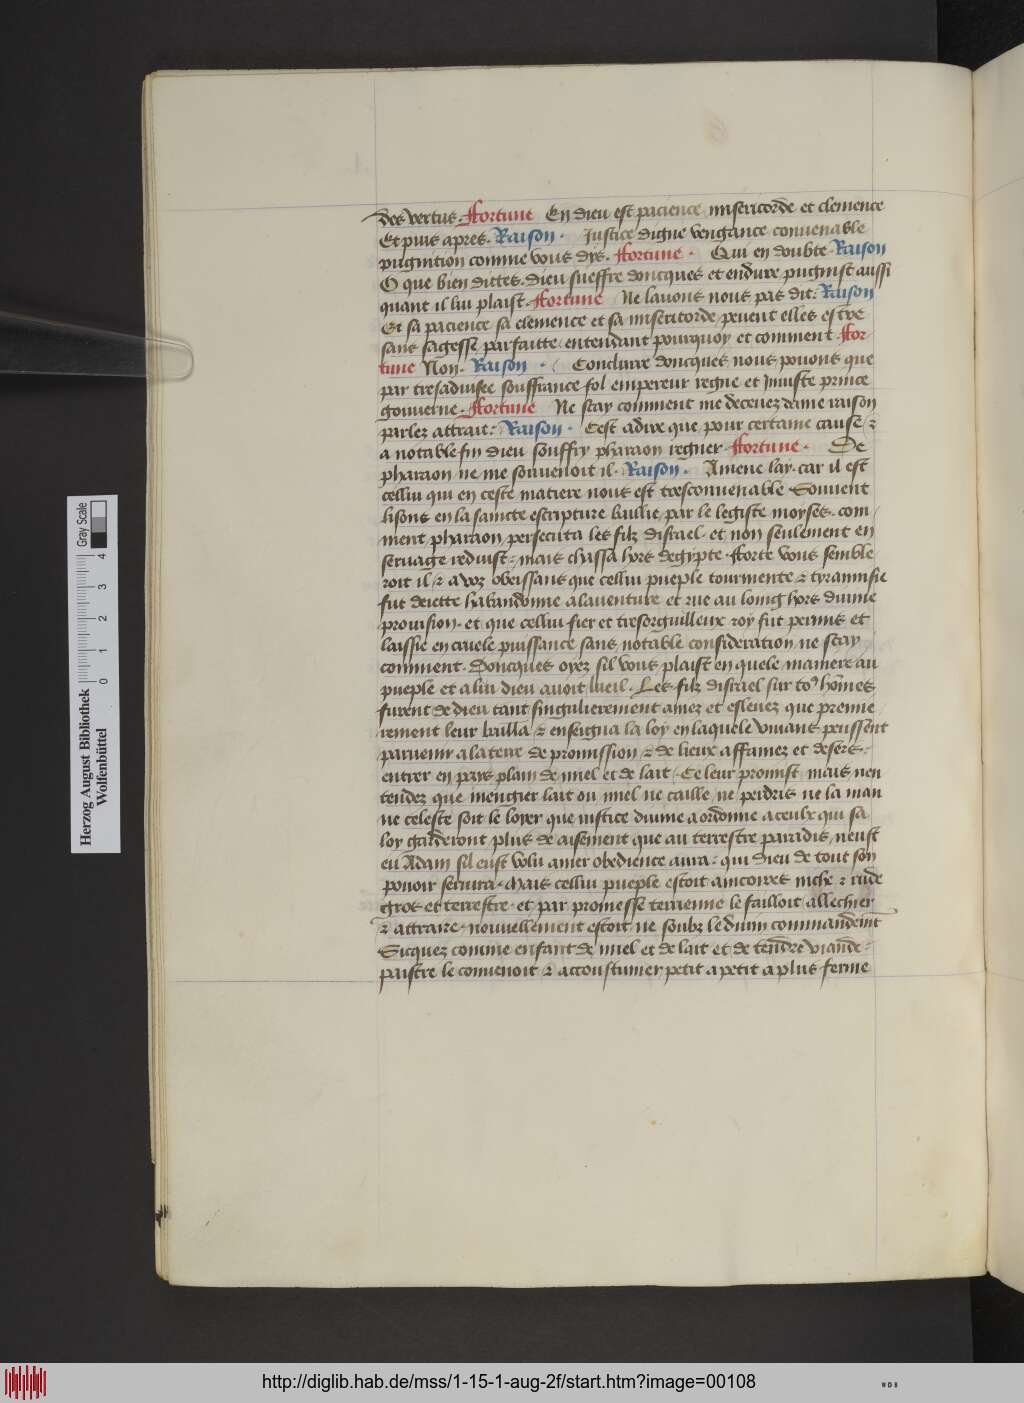 des vertus. ffortune En dieu est pacience misericorde et clemence
Et puis apres. Raison. Justice digne vengance convenable
pugnition comme vous dis. ffortune. Qui en doubte. Raison
O que bien dittes. dieu sueffre doncques et endure pugnist aussi
quant il lui plaist. ffortune Ne lavons nous pas dit: Raison
Et sa pacience sa clemence et sa misericorde pevent elles estre
sans sagesse parfaitte entendant pourquoy et comment. ffor-
tune Non. Raison. Conclurre doncques nous povons que
par tresadvisee souffrance fol empereur regne et Jnjuste prince
gouverne. ffortune Ne scay comment me decevez dame raison
parlez attrait: Raison. Cest adire que pour certaine cause, ⁊
a notable fin dieu souffry pharaon regner. ffortune. De
pharaon ne me souvenoit il. Raison. Amene lay. car il est
cellui qui en ceste matiere nous est tresconvenable Souvent
lisons en la saincte escripture baillie par le legiste moyses. com-
ment pharaon persecuta les filz disrael. et non seulement en
servage reduist, mais chassa hors degypte. fforte vous semble
roit il, ⁊ a voz obeissans que cellui pueple tourmente ⁊ tyrannisie
fut deiette habandonne a laventure et rue au loing hors divine
provision. et que cellui fier et tresorguilleux roy fut permis et
laissie en cruele puissance sans notable consideration ne scay
comment. Doncques oyez sil vous plaist en quele maniere au
pueple et a lui dieu avoit lueil. Les filz disrael sur to9 hom̄es
furent de dieu tant singulierement amez et eslevez que premie
rement leur bailla ⁊ enseigna la loy en laquele vivans peussent
parvenir a la terre de promission, ⁊ de lieux affamez et desers
entrer en pays plain de miel et de lait. Ce leur promist, mais nen
tendez que mengier lait ou miel ne caille ne perdris ne la man
ne celeste soit le loyer que justice divine a ordonne a ceulx qui sa
loy garderont plus de aisement que au terrestre paradis neust
eu Adam sil eust volu amer obedience aura: qui dieu de tout son
povoir servira. Mais cellui pueple estoit aincoires niche ⁊ rude
gros et terrestre. et par promesse terrienne le failloit allechier
⁊ attraire. nouvellement estoit ne soubz le divin commandem̄t
Sicques comme enfant de miel et de lait et de tendre viande
paistre le convenoit ⁊ accoustumer petit a petit a plus ferme
Herzog August Bibliothek
Wolfenbüttel
0 1 2 3 4
Gray Scale
http://diglib.hab.de/mss/1-15-1-aug-2f/start.htm?image=00108
WDB